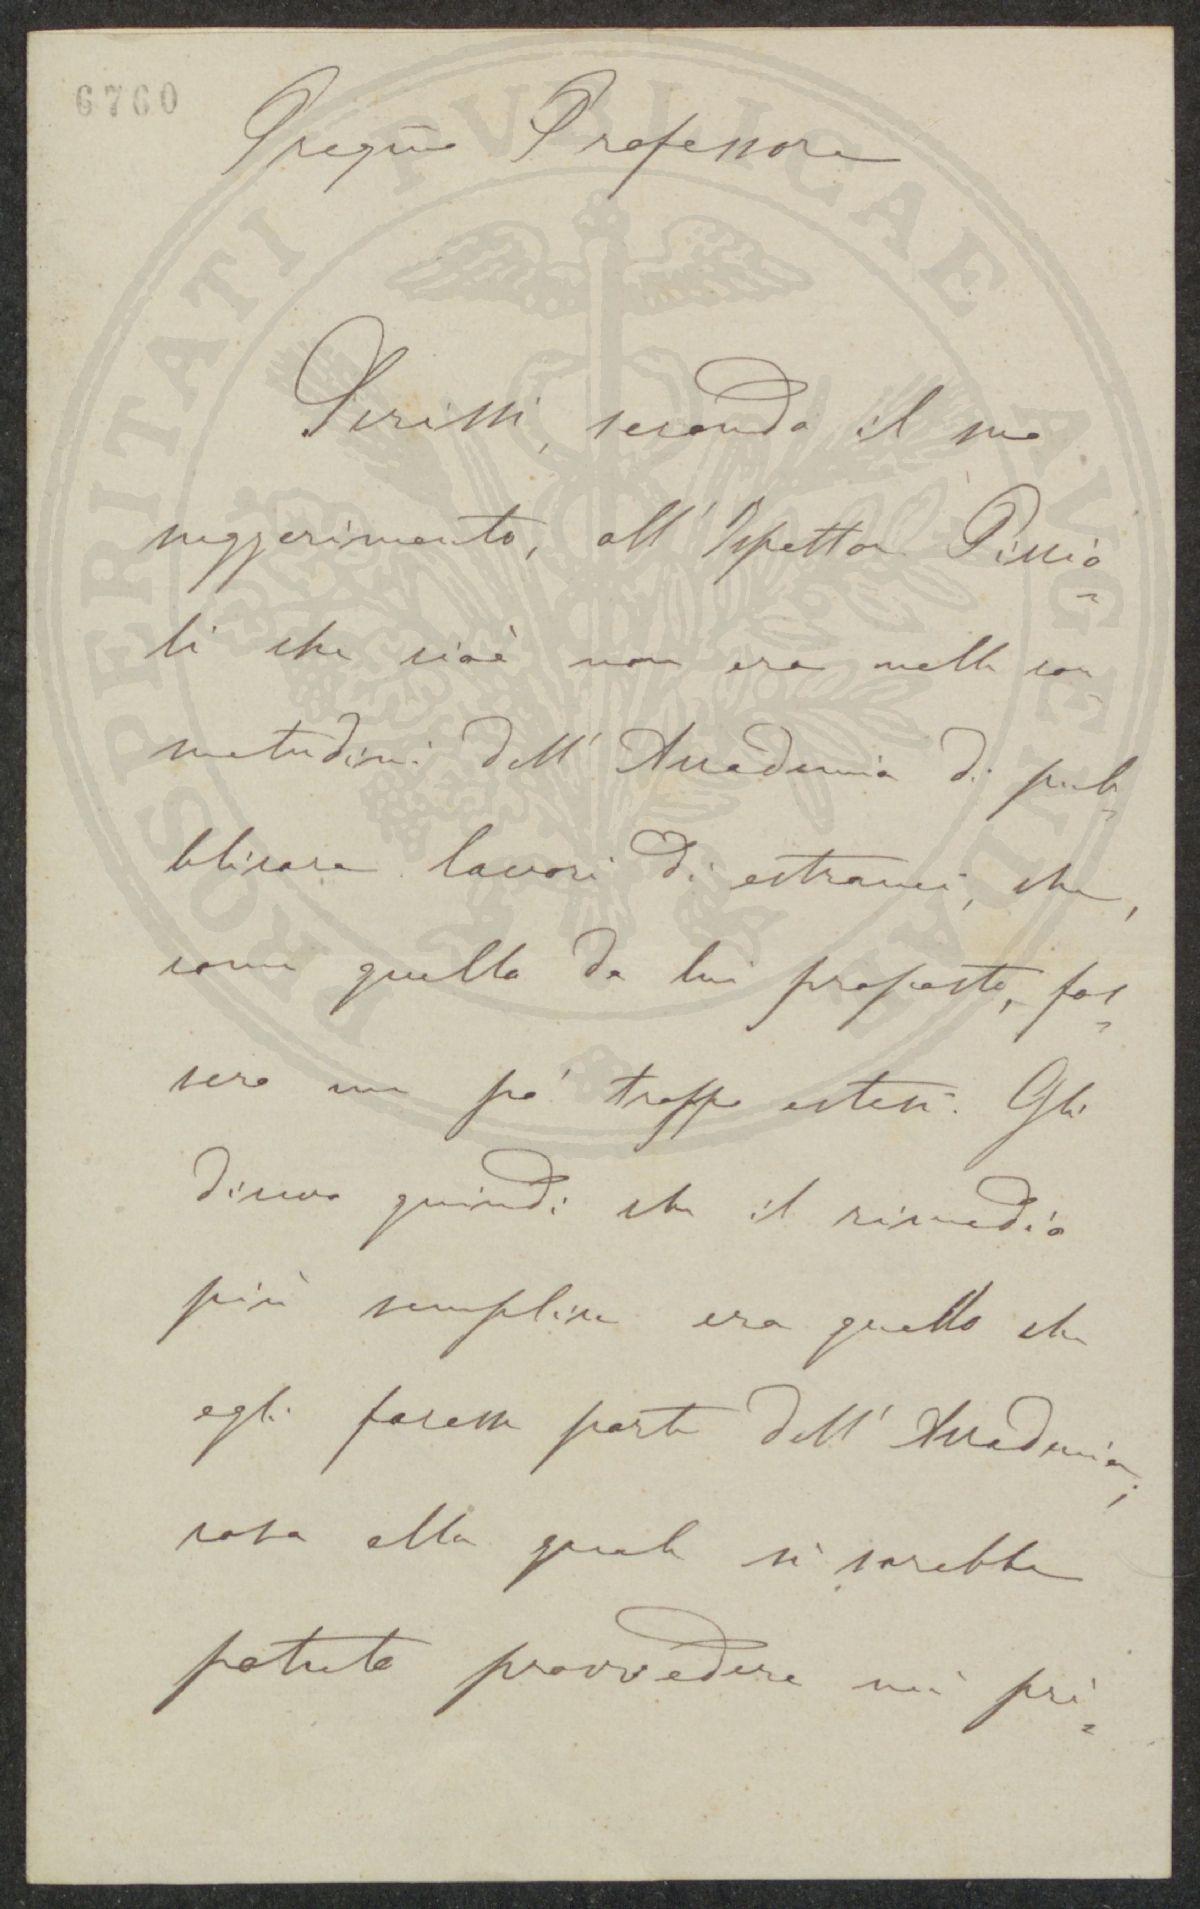 6760
Pregmo Professore
Scrissi, secondo il suo
suggerimento, all'Ispettore Piccio-
li che cioè non era nelle con-
suetudini dell'Accademia di pub-
blicare lavori di estranei, che,
come quello da lui proposto, fos-
sero un po' troppo estesi. Gli
dicevo quindi che il rimedio
più semplice era quello che
egli facesse parte dell'Accademia,
cosa alla quale si sarebbe
potuto provvedere nei pri-
PROSPERITATI PVBLICAE AVGENDAE